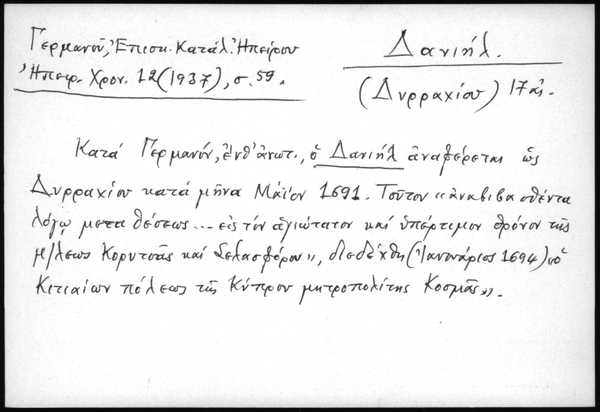 Γερμανοῦ, Ἐπισκ. Κατάλ. Ἠπείρου
Ἠπειρ. Χρον. 12 (1937), σ. 59.
Δανιήλ.
(Δυρραχίου) 17 αἰ.
Κατά Γερμανόν, ἐνθ' ἀνωτ., ὁ Δανιήλ ἀναφέρεται ὡς
Δυρραχίου κατά μῆνα Μάϊον 1691. Τοῦτον «ἀναβιβασθέντα
λόγῳ μεταθέσεως... εἰς τόν ἁγιώτατον καί ὑπέρτιμον θρόνον τῆς
μ/λεως Κορυτσᾶς καί Σελασφόρου», διεδέχθη (Ἰαννουάριος 1694) «ὁ
Κιτιαίων πόλεως τῆς Κύπρου μητροπολίτης Κοσμᾶς».